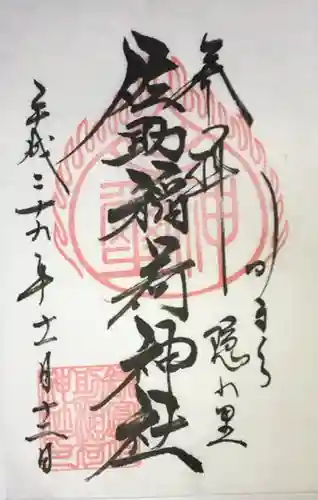 奉拝
かまくら
隠れ里
佐助稲荷神社
平成二十九年十一月十二日